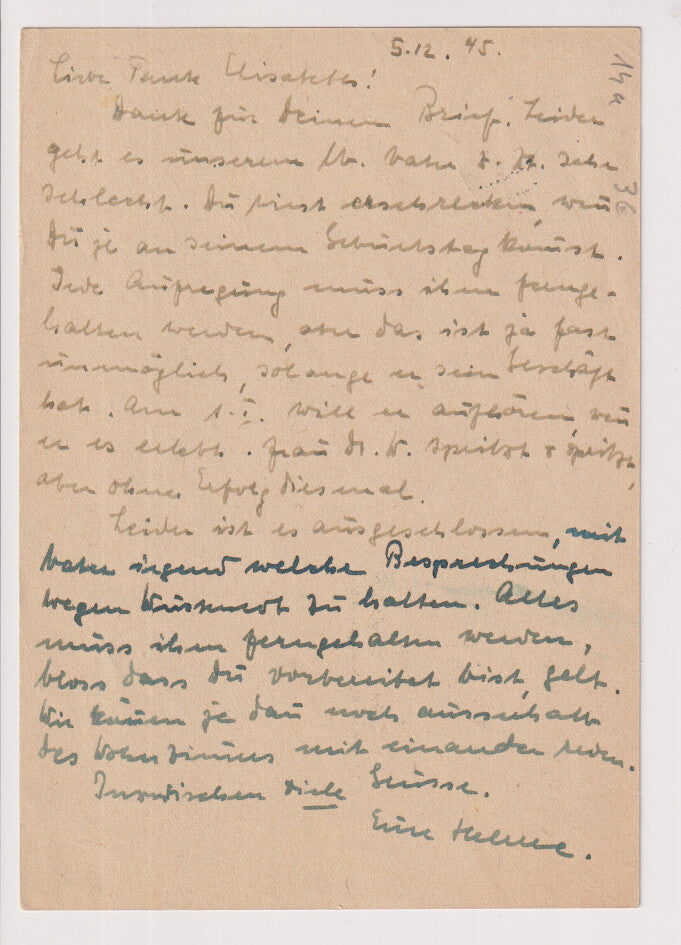 5.12.45.
14a
36
Liebe Tante Elisabeth!
Dank für Deinen Brief. Leider
geht es unserem lb. Vater z. Zt. sehr
schlecht. Du wirst erschrecken, wenn
Du je an seinem Geburtstag kommst.
Jede Aufregung muss ihm fernge-
halten werden, aber das ist ja fast
unmöglich, solange er sein Geschäft
hat. Am 1.I. will er aufhören, wenn
er es erlebt. Frau Dr. W. spritzt & spritzt,
aber ohne Erfolg diesmal.
Leider ist es ausgeschlossen, mit
Vater irgend welche Besprechungen
wegen zu halten. Alles
muss ihm ferngehalten werden,
bloss dass Du vorbereitet bist, gelt.
Wir können ja dann noch ausserhalb
des Wohnzimmers mit einander reden.
Inzwischen viele Grüsse.
Eure